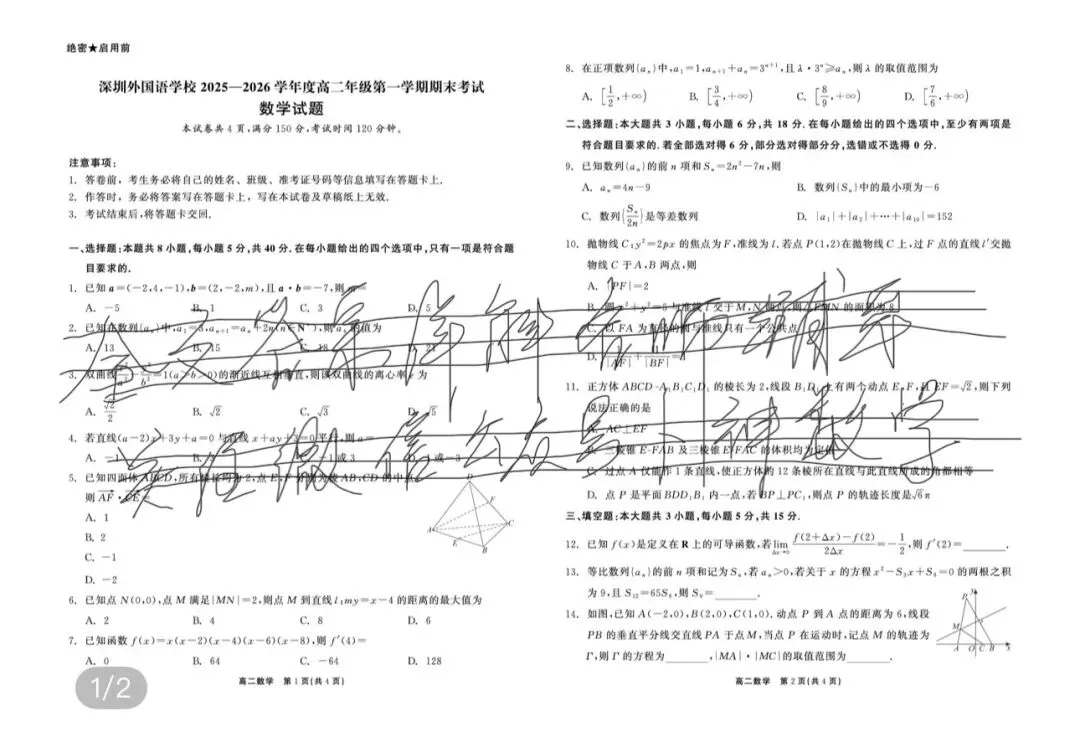 绝密★启用前
深圳外国语学校 2025—2026 学年度高二年级第一学期期末考试
数学试题
本试卷共 4 页,满分 150 分,考试时间 120 分钟。
注意事项:
1. 答卷前,考生务必将自己的姓名、班级、准考证号码等信息填写在答题卡上.
2. 作答时,务必将答案写在答题卡上,写在本试卷及草稿纸上无效.
3. 考试结束后,将答题卡交回.
一、选择题:本大题共 8 小题,每小题 5 分,共 40 分.在每小题给出的四个选项中,只有一项是符合题
目要求的.
1. 已知 a=(-2,4,-1),b=(2,-2,m),且 a·b=-7,则
A. -5 B. 1 C. 3 D. 5
2. 已知在数列{aₙ}中,a₁=3,aₙ₊₁=aₙ+2n(n∈N
A. 13 B. 15 C. 18 D. 21
3. 双曲线 =1(a>b>0)的渐近线互相垂直,则该双曲线的离心率 为
A. √2/2 B. √2 C. √3 D. √5
4. 若直线(a-2)x+3y+a=0与直线 x+ay+3=0平行,则 a=
A. -1 C. -1或3
5. 已知四面体 ABCD,所有棱长均为 2,点 E,F 分别为棱 AB,CD 的中点,
则 AF·CE=
A. 1
B. 2
C. -1
D. -2
D
F
A
C
E
B
6. 已知点 N(0,0),点 M 满足|MN|=2,则点 M 到直线 l:my=x-4 的距离的最大值为
A. 2 B. 4 C. 8 D. 6
7. 已知函数 f(x)=x(x-2)(x-4)(x-6)(x-8),则 f′(4)=
A. 0 B. 64 C. -64 D. 128
1/2
高二数学 第 1 页(共 4 页)
8. 在正项数列{aₙ}中,a₁=1,aₙ₊₁+aₙ=3ⁿ⁺¹,且 λ·3ⁿ≥aₙ,则 λ 的取值范围为
A. [1/2,+∞) B. [3/4,+∞) C. [8/9,+∞) D. [7/6,+∞)
二、选择题:本大题共 3 小题,每小题 6 分,共 18 分.在每小题给出的四个选项中,至少有两项是
符合题目要求的.若全部选对得 6 分,部分选对得部分分,选错或不选得 0 分.
9. 已知数列{aₙ}的前 n 项和 Sₙ=2n²-7n,则
A. aₙ=4n-9 B. 数列{Sₙ}中的最小项为-6
C. 数列{Sₙ/2n}是等差数列 D. |a₁|+|a₂|+…+|a₁₀|=152
10. 抛物线 C:y²=2px 的焦点为 F,准线为 l.若点 P(1,2)在抛物线 C 上,过 F 点的直线 l′交抛
物线 C 于 A,B 两点,则
A. |PF|=2
B. 圆 x²+y²=5 与准线 l 交于 M,N 两点,则△FMN 的面积为 8
C. 以 FA 为直径的圆与准线只有一个公共点
D. 1/|AF|+1/|BF|=1
11. 正方体 ABCD-A₁B₁C₁D₁ 的棱长为 2,线段 B₁D₁ 上有两个动点 E,F,且 EF=√2,则下列
说法正确的是
A. AC⊥EF
B. 三棱锥 E-FAB 及三棱锥 E-FAC 的体积均为定值
C. 过点 A 仅能作 1 条直线,使正方体的 12 条棱所在直线与此直线所成的角都相等
D. 点 P 是平面 BDD₁B₁ 内一点,若 BP⊥PC₁,则点 P 的轨迹长度是√6π
三、填空题:本大题共 3 小题,每小题 5 分,共 15 分.
12. 已知 f(x)是定义在 R 上的可导函数,若 lim Δx→0 f(2+Δx)-f(2)/2Δx=-1/2,则 f′(2)=______.
13. 等比数列{aₙ}的前 n 项和记为 Sₙ,若 aₙ>0,若关于 x 的方程 x²-S₃x+S₉=0 的两根之积
为 9,且 S₁₂=65S₆,则 S₉=______.
14. 如图,已知 A(-2,0),B(2,0),C(1,0).动点 P 到 A 点的距离为 6,线段
PB 的垂直平分线交直线 PA 于点 M,当点 P 在运动时,记点 M 的轨迹为
Γ,则 Γ 的方程为______,|MA|·|MC|的取值范围为______.
P
y
M
A O C B x
高二数学 第 2 页(共 4 页)